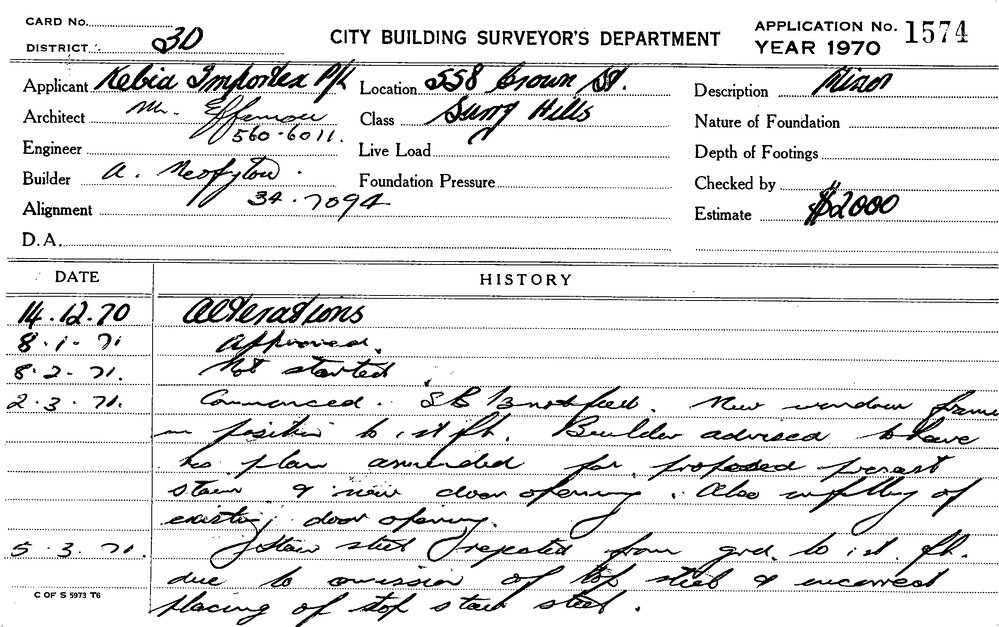 CARD No.
DISTRICT 3D
CITY BUILDING SURVEYOR'S DEPARTMENT
APPLICATION No. 1574
YEAR 1970
Applicant Kebia Importex P/L
Location 558 Crown St.
Description Minor
Architect Mr.
560-6011.
Class Surry Hills
Nature of Foundation
Engineer
Live Load
Depth of Footings
Builder A. Neofytou.
Foundation Pressure
Checked by
Alignment 34.7094
Estimate $2000
D.A.
DATE HISTORY
14.12.70 Alterations
8.1.71 Approved.
8.2.71. Not started.
2.3.71. Commenced. SB notified. New window frame
in position to 1st flr. Builder advised to have
his plan ammended for proposed precast
stair & new door opening. Also infilling of
existing door opening.
5.3.71. Stair steel rejected from grd. to 1st. flr.
due to omission of top steel & incorrect
placing of top stair steel.
C OF S 5973 T6